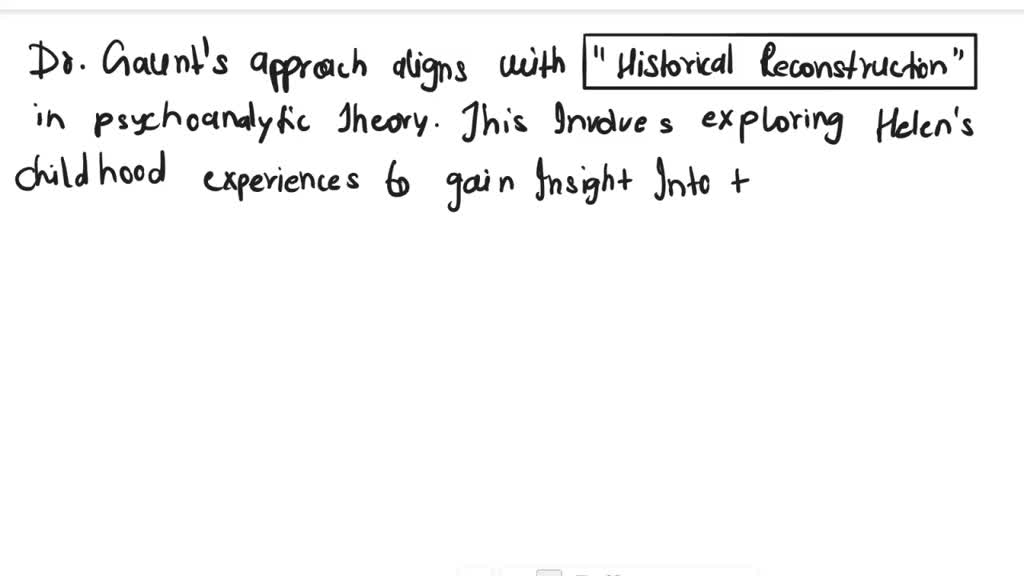 Dr. Gaunt's approach aligns with "Historical Reconstruction"
in psychoanalytic Theory. This Involves exploring Helen's
childhood experiences to gain Insight Into t